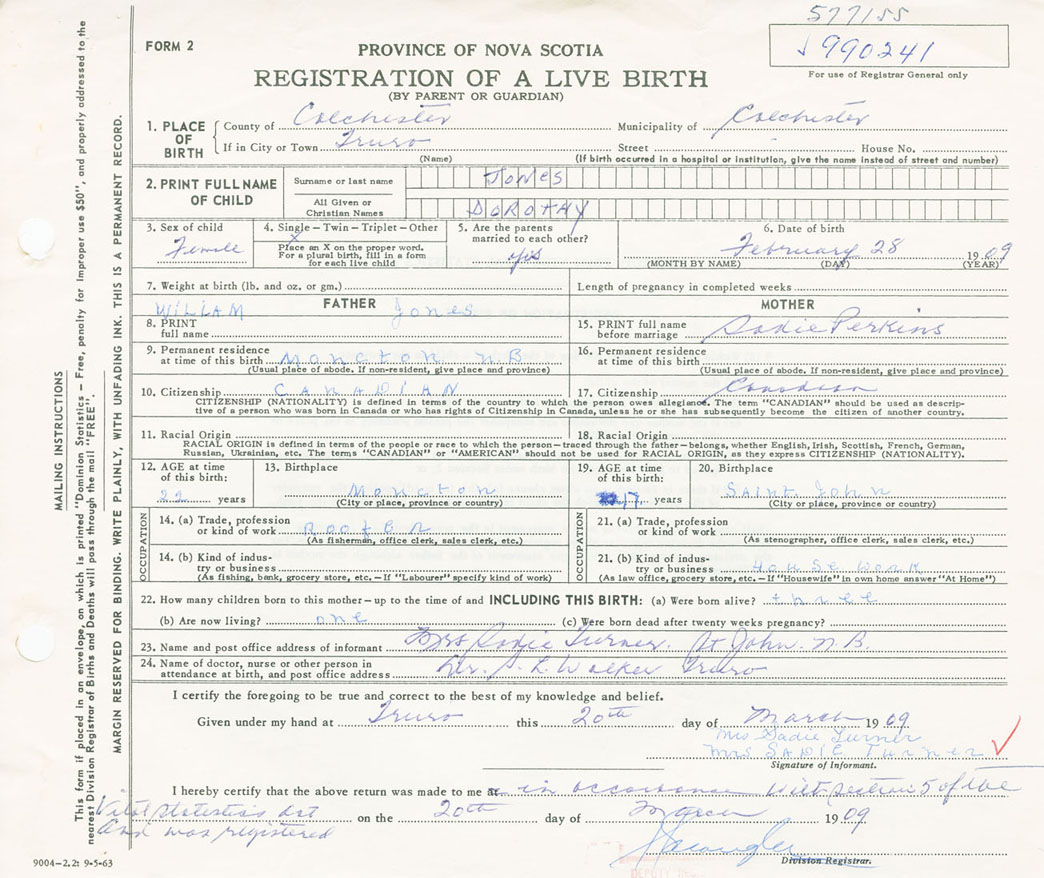 577155
FORM 2
PROVINCE OF NOVA SCOTIA
990241
REGISTRATION OF A LIVE BIRTH
For use of Registrar General only
(BY PARENT OR GUARDIAN)
1. PLACE OF BIRTH County of Colchester Municipality of Colchester
If in City or Town Truro Street House No.
(Name) (If birth occurred in a hospital or institution, give the name instead of street and number)
2. PRINT FULL NAME OF CHILD Surname or last name JONES
All Given or Christian Names DOROTHY
3. Sex of child Female
4. Single – Twin – Triplet – Other
X
Place an X on the proper word. For a plural birth, fill in a form for each live child
5. Are the parents married to each other? yes
6. Date of birth February 28 1909
(MONTH BY NAME) (DAY) (YEAR)
7. Weight at birth (lb. and oz. or gm.) Length of pregnancy in completed weeks
FATHER MOTHER
8. PRINT full name WILLIAM Jones
15. PRINT full name before marriage Sadie Perkins
9. Permanent residence at time of this birth Moncton N B
(Usual place of abode. If non-resident, give place and province)
16. Permanent residence at time of this birth
(Usual place of abode. If non-resident, give place and province)
10. Citizenship CANADIAN 17. Citizenship Canadian
CITIZENSHIP (NATIONALITY) is defined in terms of the country to which the person owes allegiance. The term "CANADIAN" should be used as descrip-
tive of a person who was born in Canada or who has rights of Citizenship in Canada, unless he or she has subsequently become the citizen of another country.
11. Racial Origin 18. Racial Origin
RACIAL ORIGIN is defined in terms of the people or race to which the person – traced through the father – belongs, whether English, Irish, Scottish, French, German,
Russian, Ukrainian, etc. The terms "CANADIAN" or "AMERICAN" should not be used for RACIAL ORIGIN, as they express CITIZENSHIP (NATIONALITY).
12. AGE at time of this birth: 22 years
13. Birthplace Moncton
(City or place, province or country)
19. AGE at time of this birth: 17 years
20. Birthplace SAINT John
(City or place, province or country)
OCCUPATION
14. (a) Trade, profession or kind of work ROOFER
(As fisherman, office clerk, sales clerk, etc.)
14. (b) Kind of indus-
try or business
(As fishing, bank, grocery store, etc. – If "Labourer" specify kind of work)
OCCUPATION
21. (a) Trade, profession or kind of work
(As stenographer, office clerk, sales clerk, etc.)
21. (b) Kind of indus-
try or business House work
(As law office, grocery store, etc. – If "Housewife" in own home answer "At Home")
22. How many children born to this mother – up to the time of and INCLUDING THIS BIRTH: (a) Were born alive? three
(b) Are now living? one (c) Were born dead after twenty weeks pregnancy?
23. Name and post office address of informant Mrs Sadie Turner. St John. N.B.
24. Name of doctor, nurse or other person in
attendance at birth, and post office address Dr. Walker Truro
I certify the foregoing to be true and correct to the best of my knowledge and belief.
Given under my hand at Truro this 20th day of March 1909
Mrs Sadie Turner
Mrs SADIE Turner
Signature of Informant.
I hereby certify that the above return was made to me at in accordance with section 5 of the
Vital Statistics Act on the 20th day of March 1909
and was registered
Division Registrar.
DEPUTY
9004–2,2: 9-5-63
MAILING INSTRUCTIONS
This form if placed in an envelope, on which is printed "Dominion Statistics – Free, penalty for improper use $50", and properly addressed to the
nearest Division Registrar of Births and Deaths will pass through the mail "FREE".
MARGIN RESERVED FOR BINDING. WRITE PLAINLY, WITH UNFADING INK. THIS IS A PERMANENT RECORD.